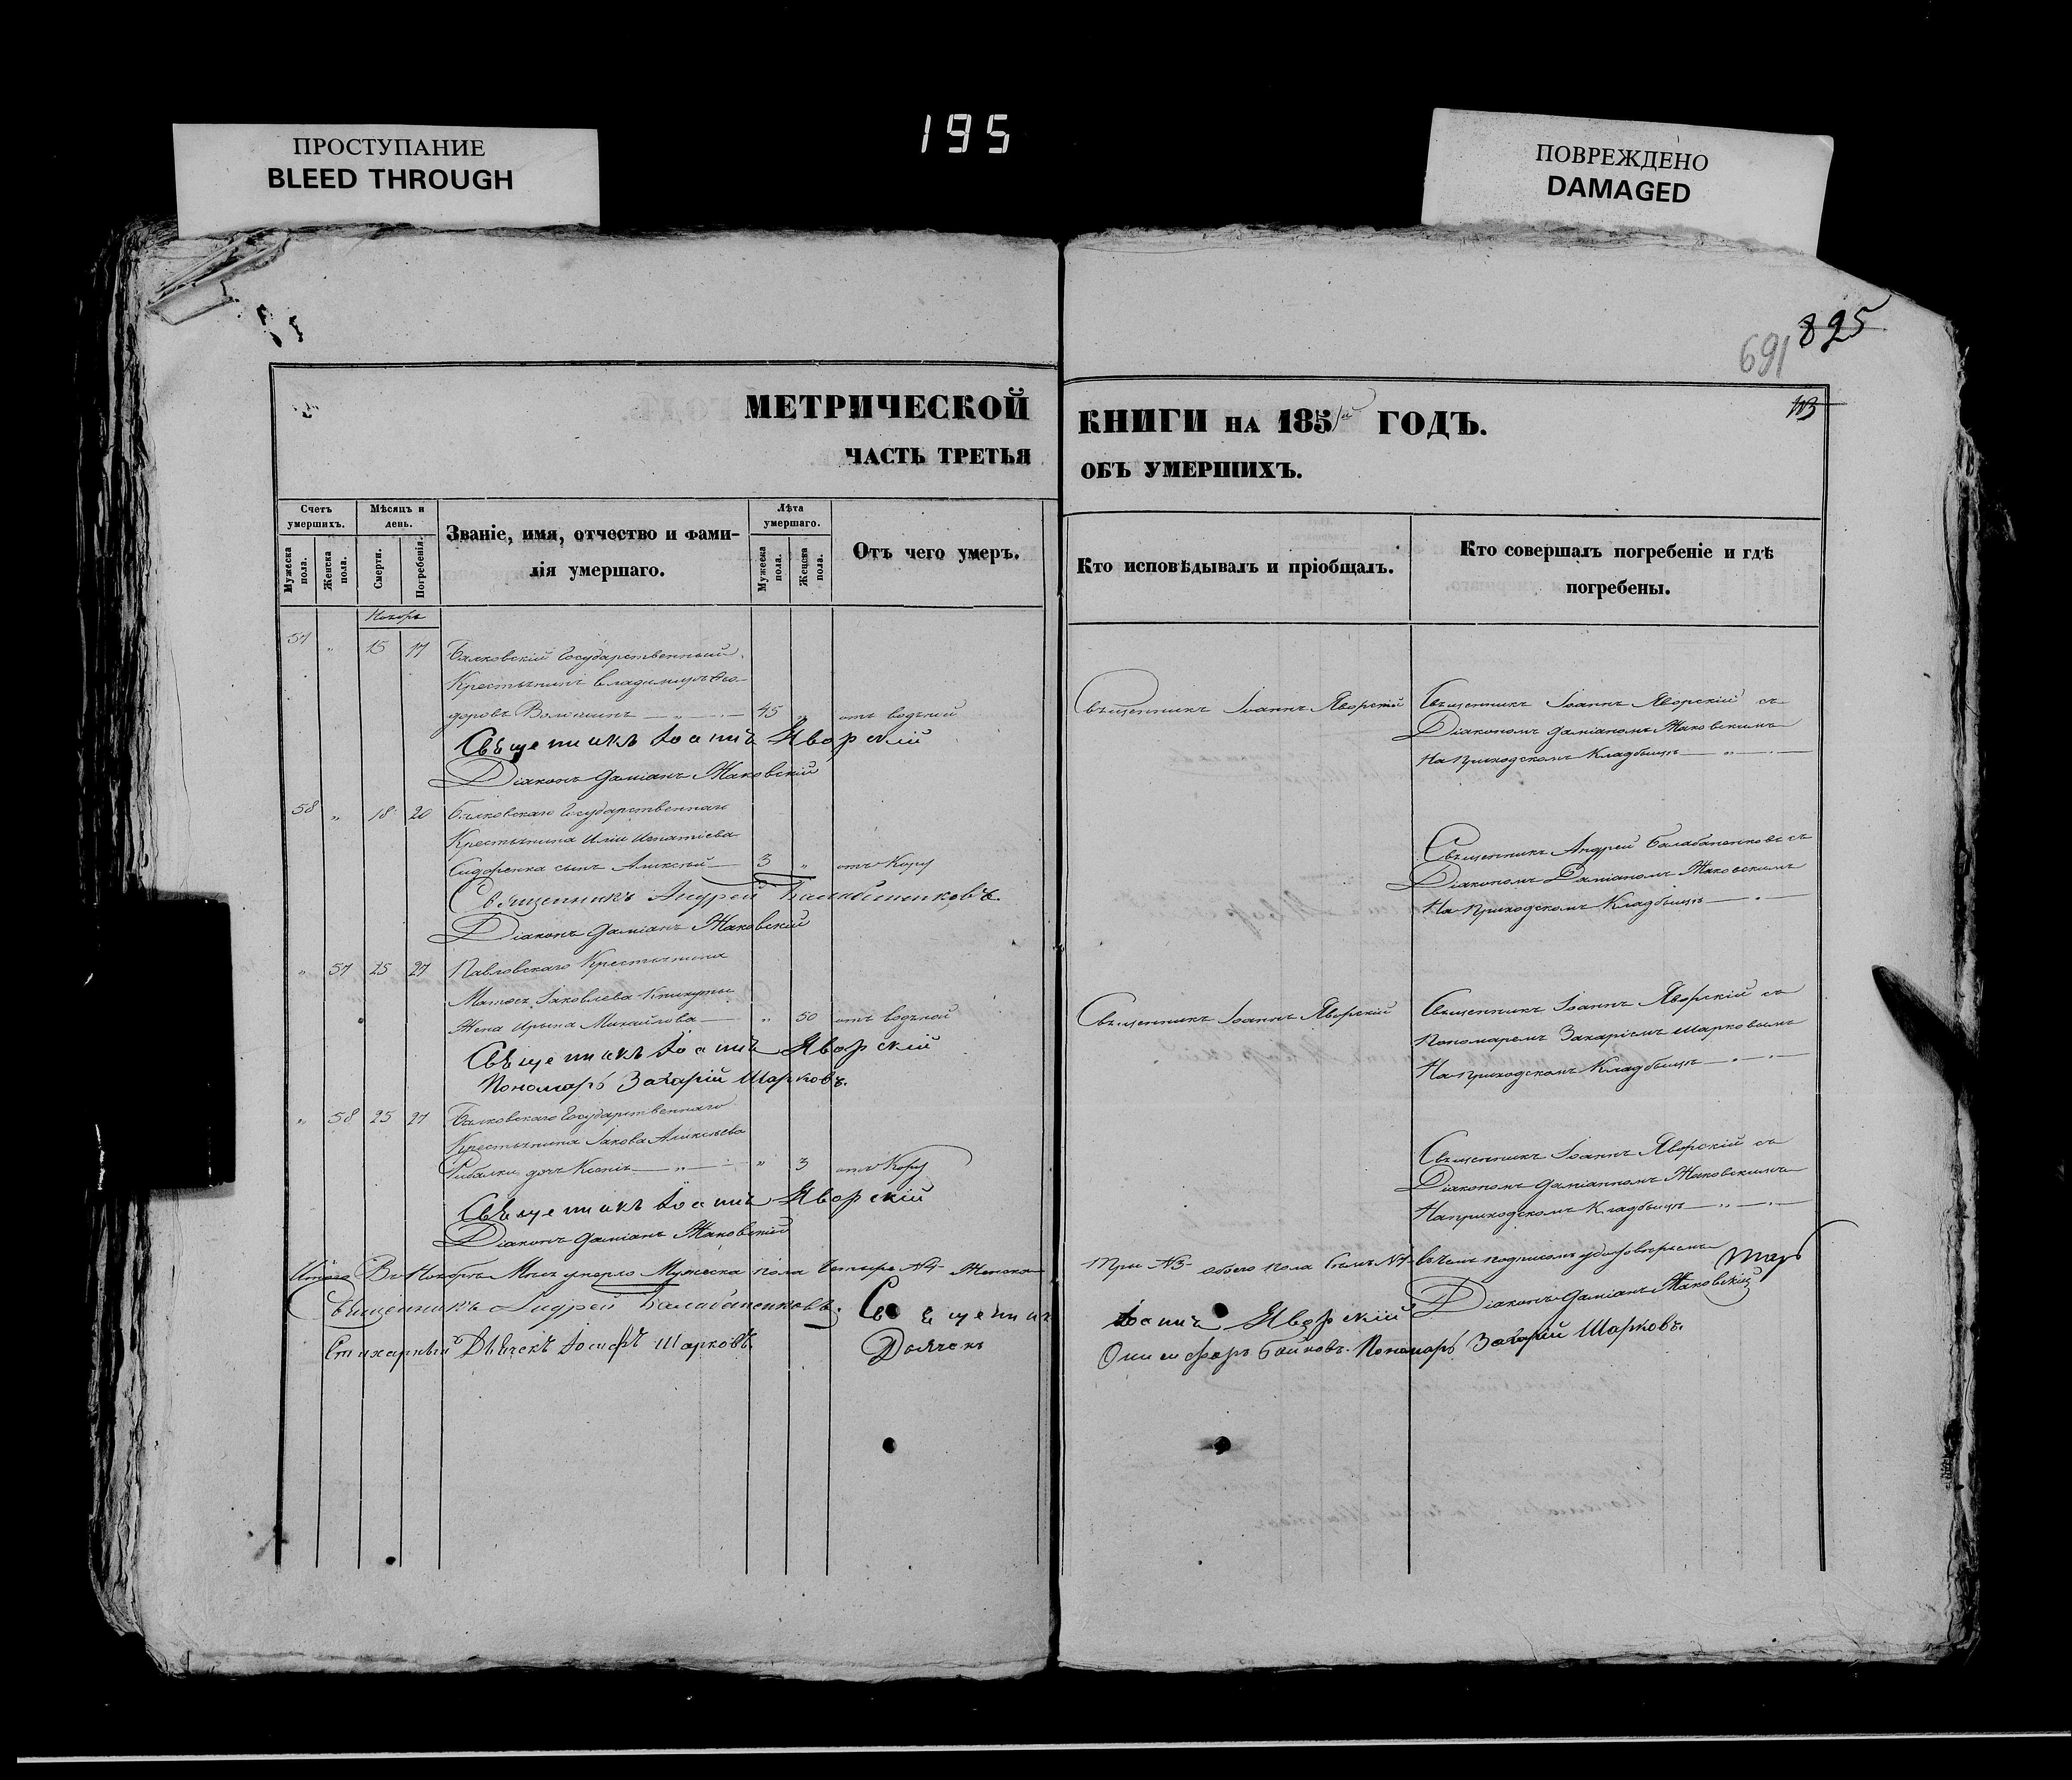 195
ПРОСТУПАНИЕ
BLEED THROUGH
ПОВРЕЖДЕНО
DAMAGED
825
691
113
МЕТРИЧЕСКОЙ КНИГИ НА 1851й ГОДЪ.
ЧАСТЬ ТРЕТЬЯ ОБЪ УМЕРШИХЪ.
Счетъ умершихъ.
Мужеска пола.
Женска пола.
Мѣсяцъ и день.
Смерти.
Погребенія.
Званіе, имя, отчество и фамилія умершаго.
Лѣта умершаго.
Мужеска пола.
Женска пола.
Отъ чего умеръ.
Кто исповѣдывалъ и пріобщалъ.
Кто совершалъ погребеніе и гдѣ погребены.
Ноября
57 " 15 17 Балковскій Государственный
Крестьянинъ Владимиръ Ѳео-
доровъ Волошинъ 45 " отъ водяной
Священникъ Іоаннъ Яворскій
Священникъ Іоаннъ Яворскій съ
Діакономъ Даміаномъ Жаковскимъ
На приходскомъ Кладбищѣ
Священникъ Іоаннъ Яворскій
Діаконъ Даміанъ Жаковскій
58 " 18 20 Балковскаго Государственнаго
Крестьянина Иліи Игнатіева
Сидоренка сынъ Алексѣй 3 " отъ Кору
Священникъ Андрей Балабаненковъ съ
Діакономъ Даміаномъ Жаковскимъ
На приходскомъ Кладбищѣ
Священникъ Андрей Балабаненковъ
Діаконъ Даміанъ Жаковскій
" 57 25 27 Павловскаго Крестьянина
Іаковлева
Жена Ирина Михайлова " 50 отъ водяной
Священникъ Іоаннъ Яворскій
Священникъ Іоаннъ Яворскій съ
Пономаремъ Захаріемъ Шарковымъ
На приходскомъ Кладбищѣ
Священникъ Іоаннъ Яворскій
Пономарь Захарій Шарковъ.
" 58 25 27 Балковскаго Государственнаго
Крестьянина Іакова Алексѣева
Рибалки дочь Ксенія " 3 отъ Кору
Священникъ Іоаннъ Яворскій съ
Діакономъ Даміаномъ Жаковскимъ
На приходскомъ Кладбищѣ
Священникъ Іоаннъ Яворскій
Діаконъ Даміанъ Жаковскій
Итого Въ Ноябрѣ Мцѣ умерло Мужеска пола Четыре №4 Женска Три №3 обоего пола Семь №7 въ чемъ подписомъ удостовѣряемъ
Священникъ Андрей Балабаненковъ. Священникъ Іоаннъ Яворскій Діаконъ Даміанъ Жаковскій
Стихарный Дьячекъ Іосифъ Шарковъ. Дьячекъ Онисифоръ Бойковъ. Пономарь Захарій Шарковъ.